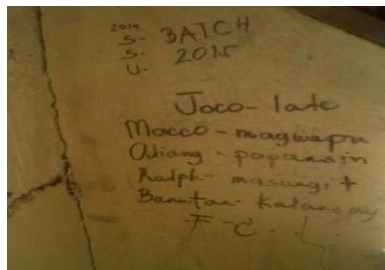 2014
S- BATCH
S- 2015
U-
Joco - late
Macco - magwapu
Odiang - papansin
Ralph - masungit
Banutan - Kalansay
-F-C.